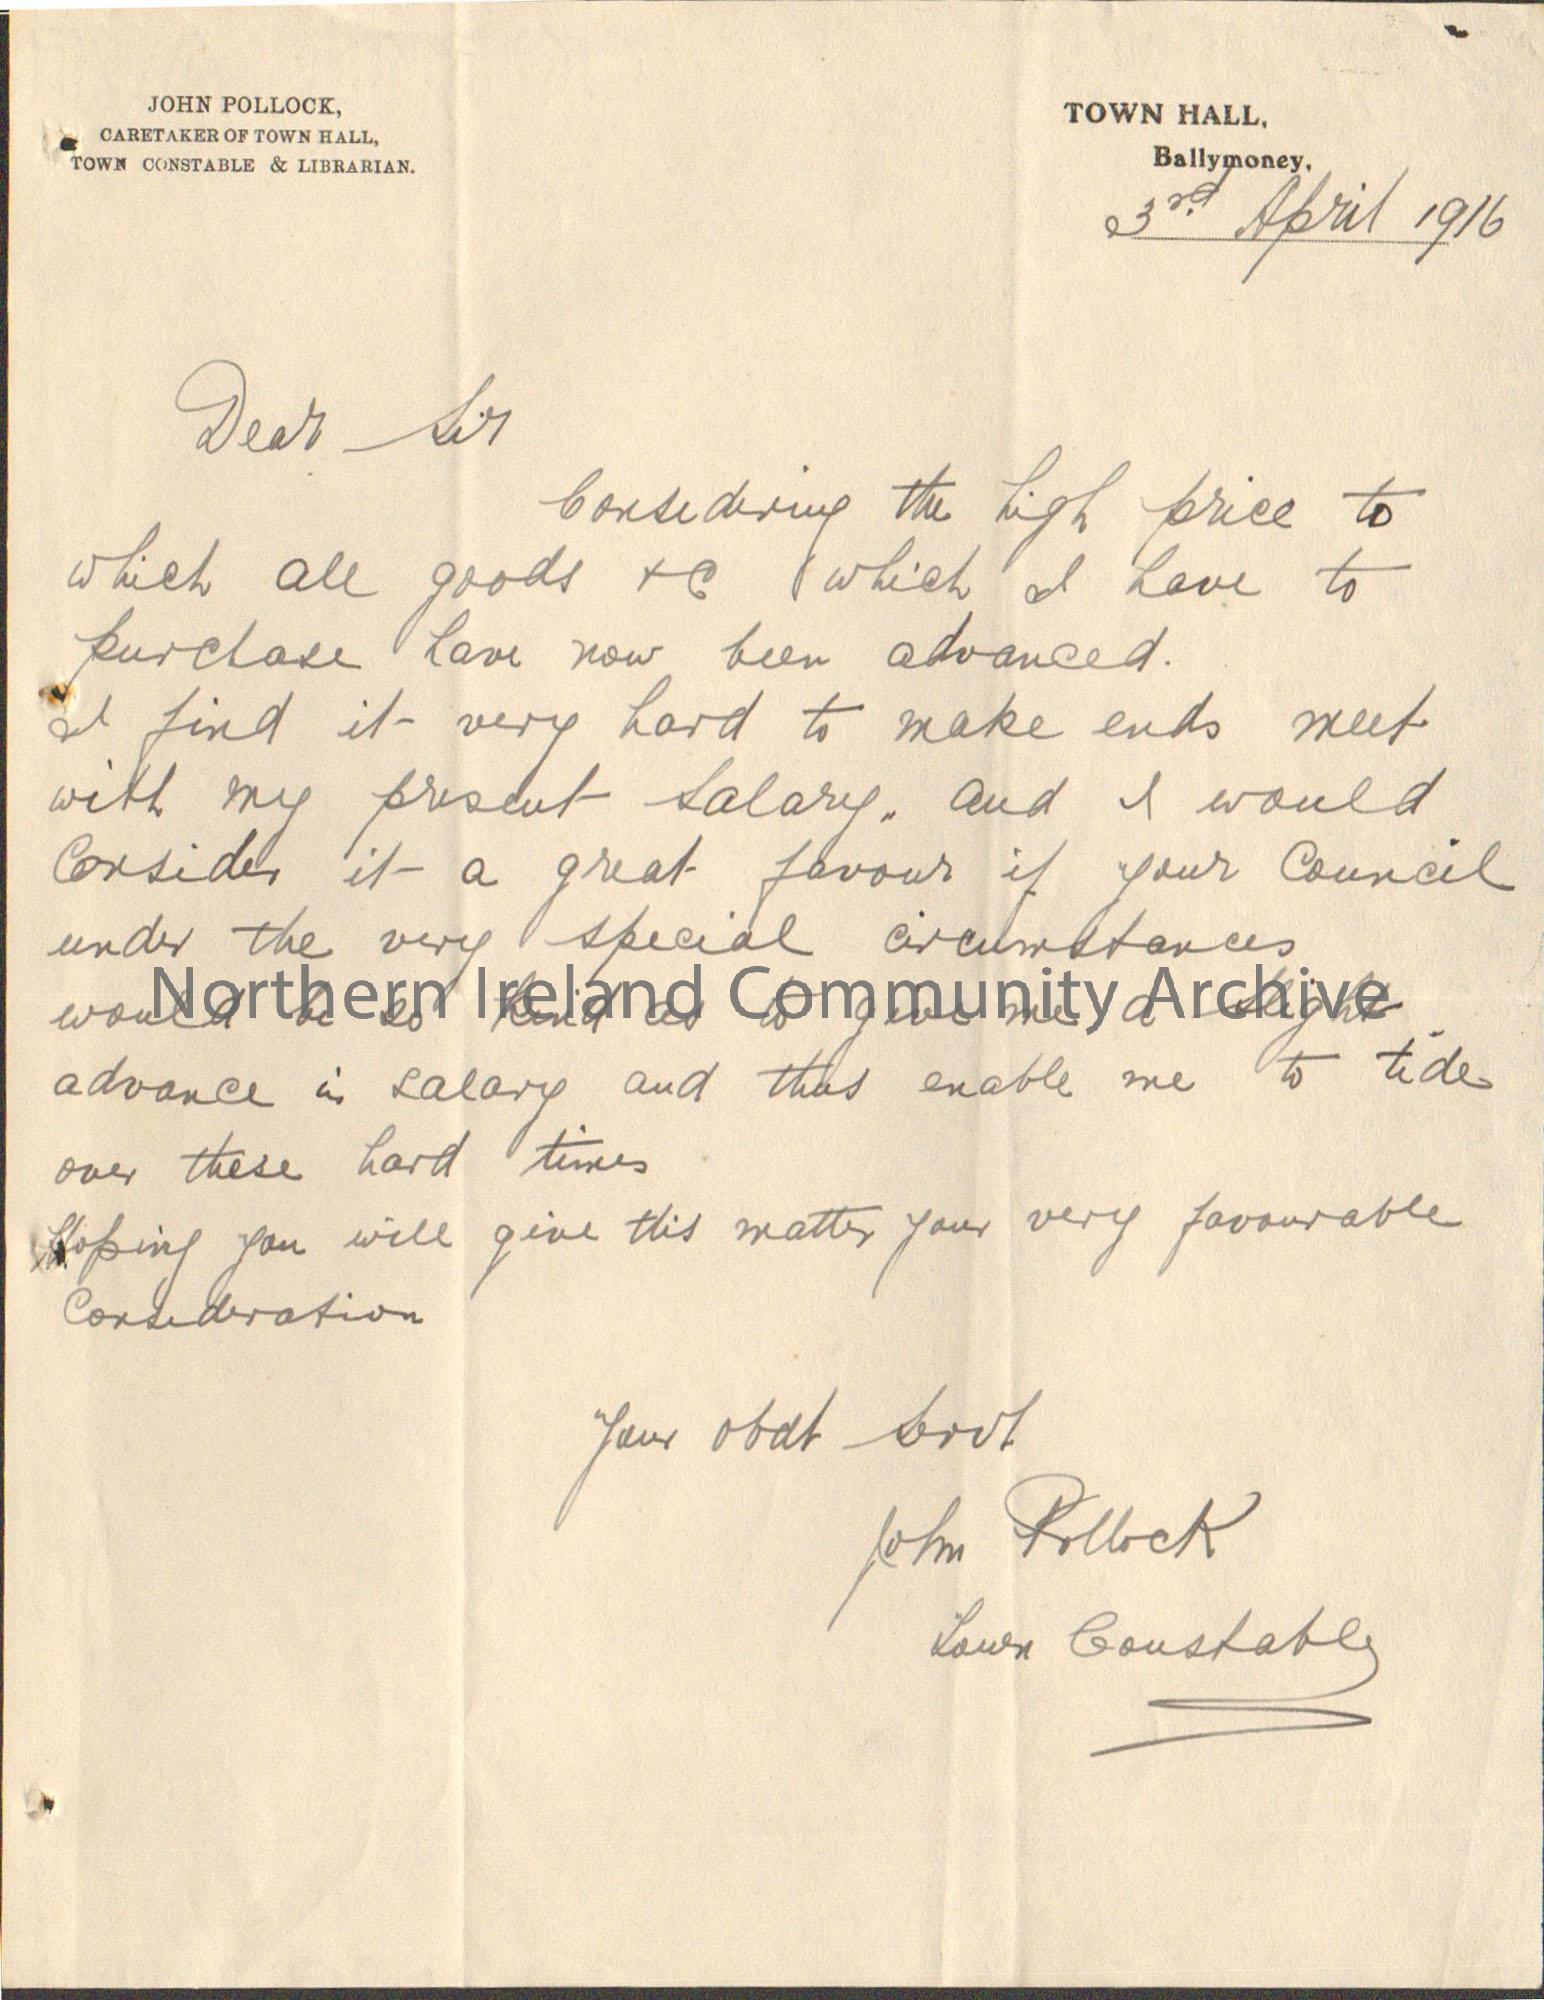 JOHN POLLOCK,
CARETAKER OF TOWN HALL,
TOWN CONSTABLE & LIBRARIAN.
TOWN HALL,
Ballymoney,
3rd. April 1916
Dear Sir
Considering the high price to
which all goods &c which I have to
purchase have now been advanced.
I find it very hard to make ends meet
with my present salary. and I would
Consider it a great favour if your Council
under the very special circumstances
would be so kind as to give me a slight
advance in salary and thus enable me to tide
over these hard times
Hoping you will give this matter your very favourable
Consideration
Your obdt Servt
John Pollock
Town Constable
Northern Ireland Community Archive